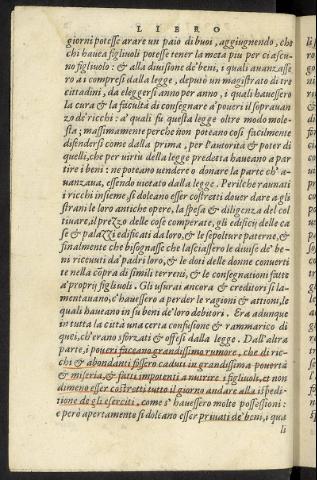 LIBRO
giorni potesse arare un paio di buoi, aggiugnendo, che
chi hauea figliuoli potesse tener la metà piu per ciascu-
no figliuolo: & alla diuisione de' beni, i quali auanzasse
ro a i compresi dalla legge, deputò un magistrato di tre
cittadini, da eleggersi anno per anno, i quali hauessero
la cura & la facultà di consegnare a' poueri il soprauan-
zo de' ricchi: a' quali fu questa legge oltre modo mole-
sta; massimamente perche non poteano così facilmente
difendersi come dalla prima, per l'autorità & poter di
quelli, che per uirtù della legge predetta haueano a par-
tire i beni: ne poteano uendere o donare la parte ch' a-
uanzaua, essendo uietato dalla legge. Perilche raunati
i ricchi insieme si doleano esser costretti douer dare a gli
strani le loro antiche opere, la spesa & diligenza del col
tiuare, il prezzo delle cose comperate, gli edificij delle ca
se & palazzi edificati da loro, & le sepolture paterne, &
finalmente che bisognasse che lasciassero le diuise de' be-
ni riceuuti da' padri loro, & le doti delle donne conuerti
te nella cōpra di simili terreni, & le consegnationi fatte
a' proprij figliuoli. Gli usurai ancora & creditori si la-
mentauano, c'hauessero a perder le ragioni & attioni, le
quali haueano in su beni de' loro debitori. Era adunque
in tutta la città una certa confusione & rammarico di
quei, ch'erano sforzati & offesi dalla legge. Dall'altra
parte, i poueri faceano grandissimo rumore, che di ric-
chi & abondanti fossero caduti in grandissima pouertà
& miseria, & fatti impotenti a nutrire i figliuoli, et non
dimeno esser costretti tutto il giorno andare alla ispedi-
tione de gli eserciti, come s'hauessero molte possessioni:
e però apertamente si doleano esser priuati de' beni, i qua
li